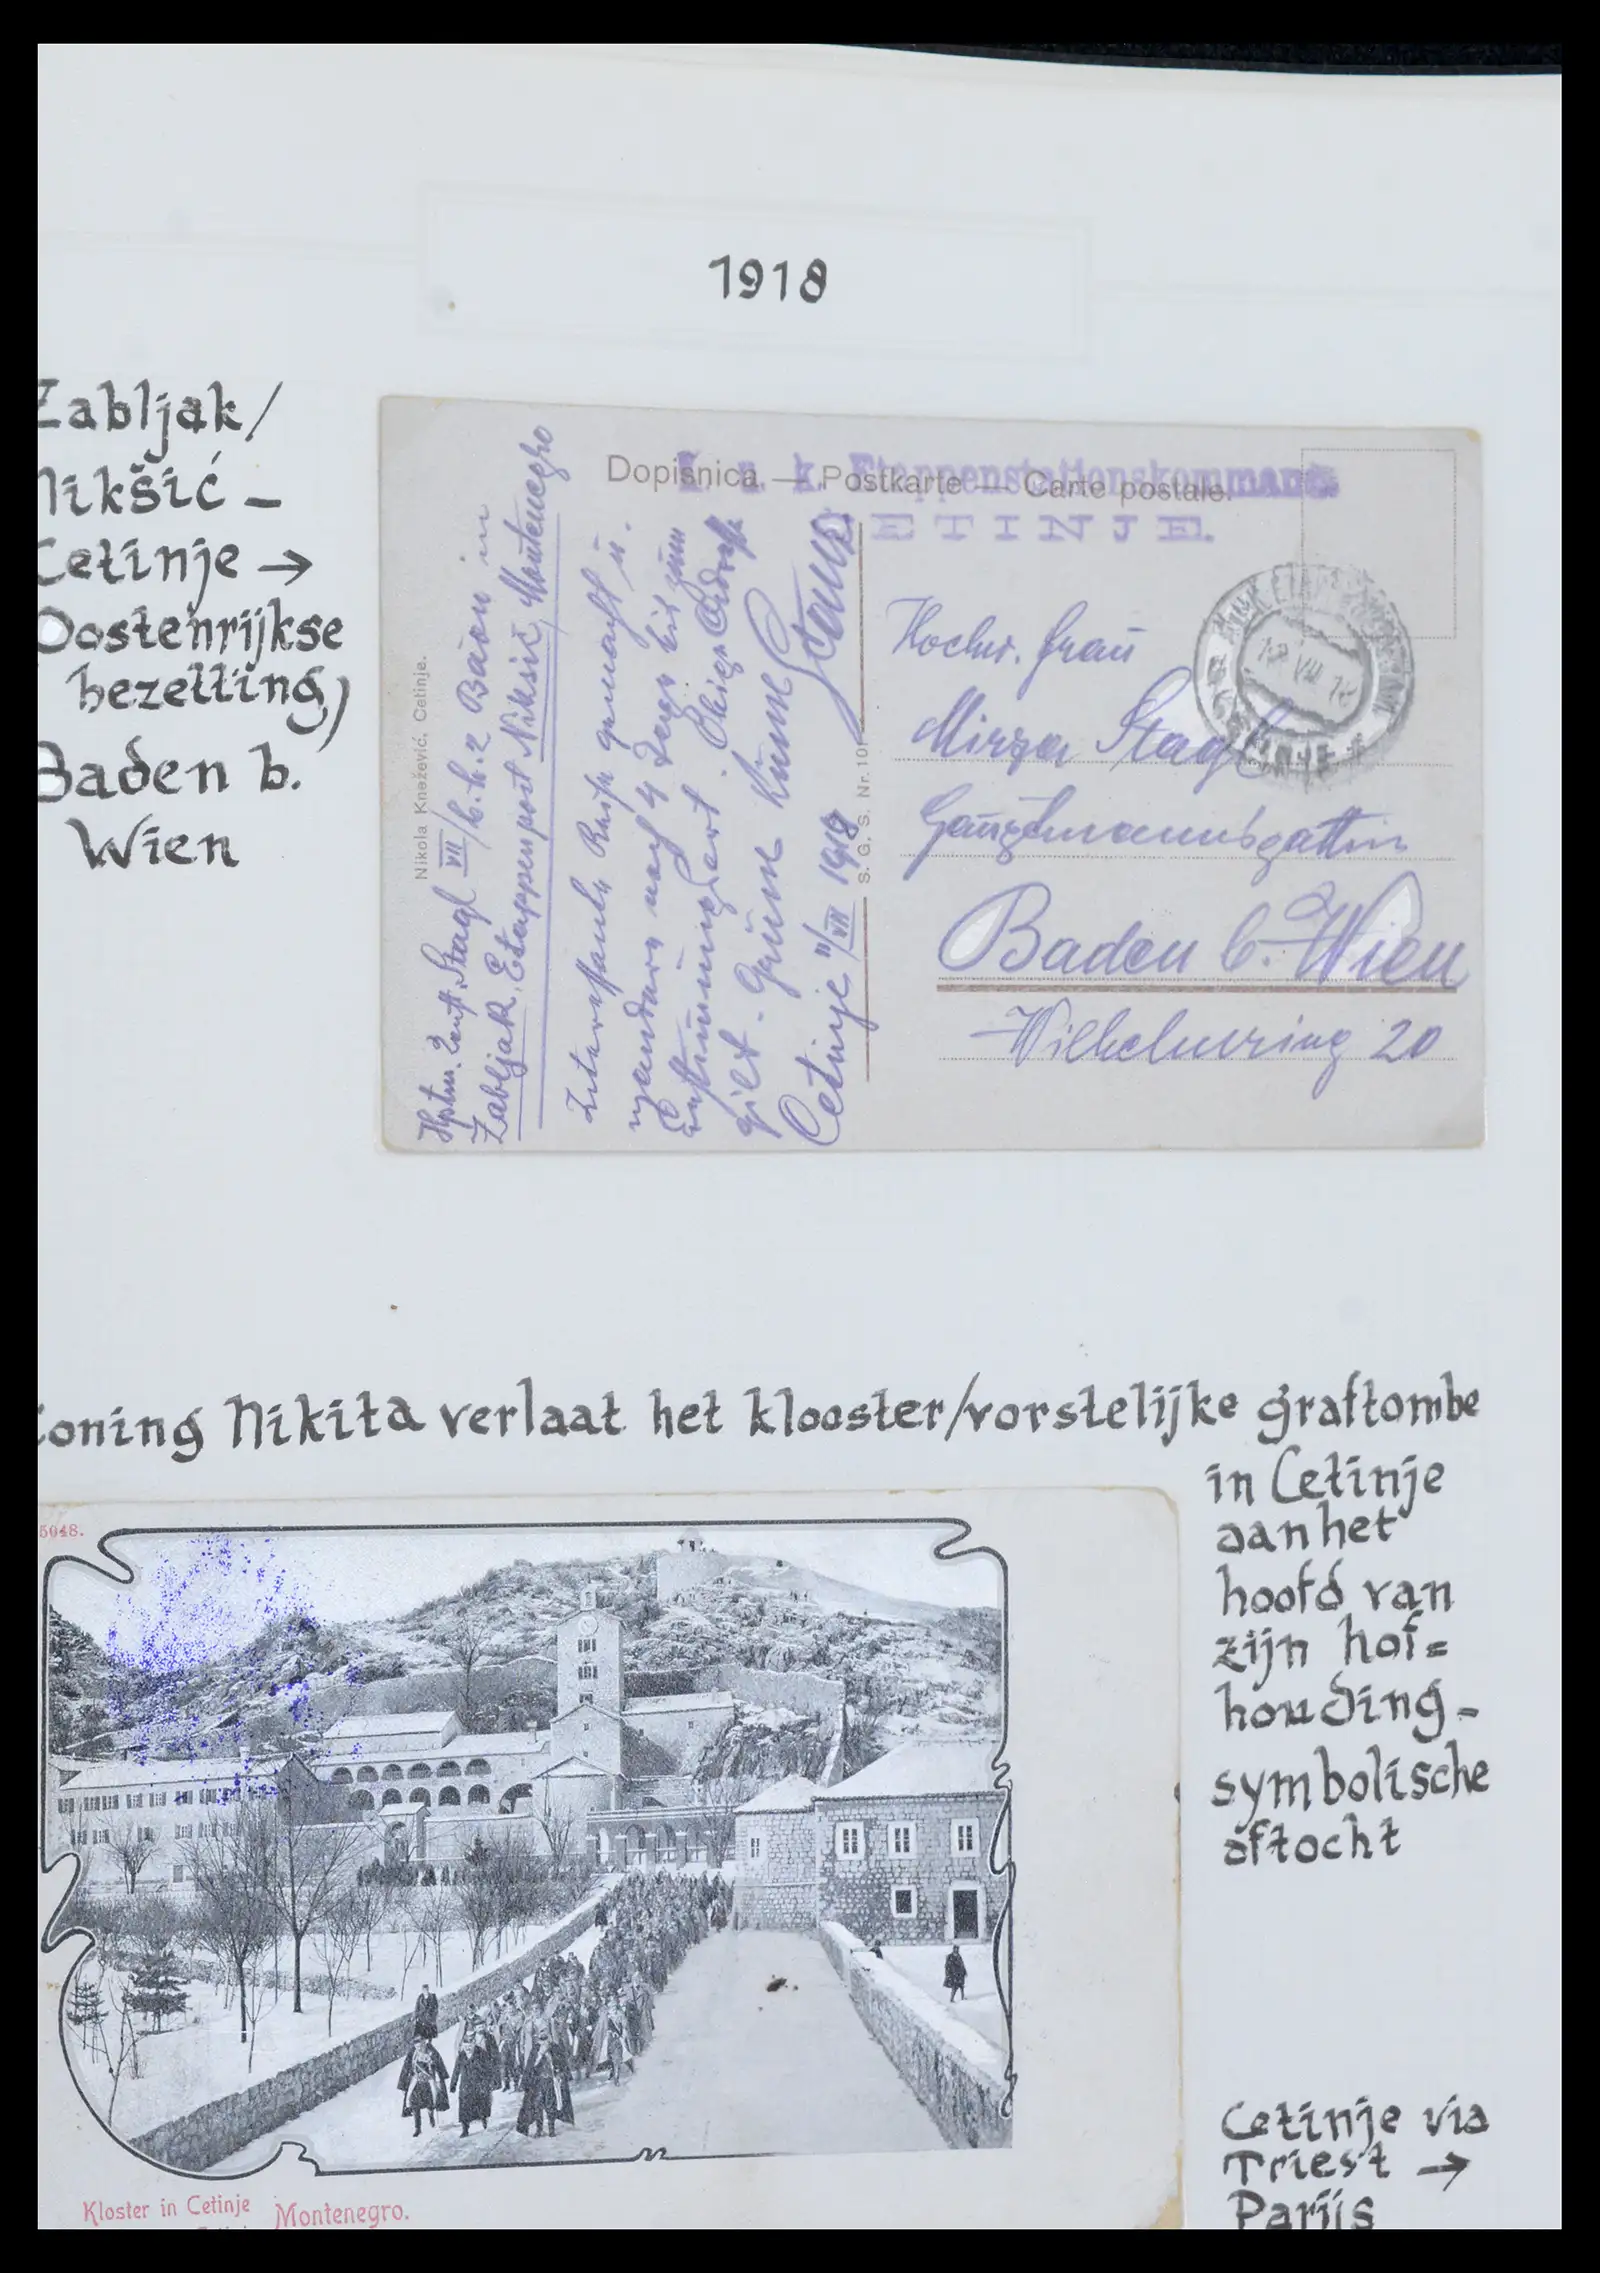 1918
Zabljak/
Nikšić –
Cetinje →
Oostenrijkse
bezetting)
Baden b.
Wien
Dopisnica — Postkarte — Carte postale.
K. u. k. Etappenstationskommando
CETINJE.
Nikola Knežević, Cetinje.
S. G. S. Nr. 101
Hptm. Stagl VII/k.k. 2 Baon in
Zabljak, Etappenpost Nikšić, Montenegro
Interessante Reise gemacht u.
noch 4 Tage bis zum
gilt.
Cetinje 11/VII 1918
Hochw. Frau
Mirza Stagl
Hauptmannsgattin
Baden b. Wien
Wilhelmring 20
Koning Nikita verlaat het klooster/vorstelijke graftombe
in Cetinje
aan het
hoofd van
zijn hof=
houding –
symbolische
aftocht
5048.
Kloster in Cetinje Montenegro.
Cetinje via
Triest →
Parijs